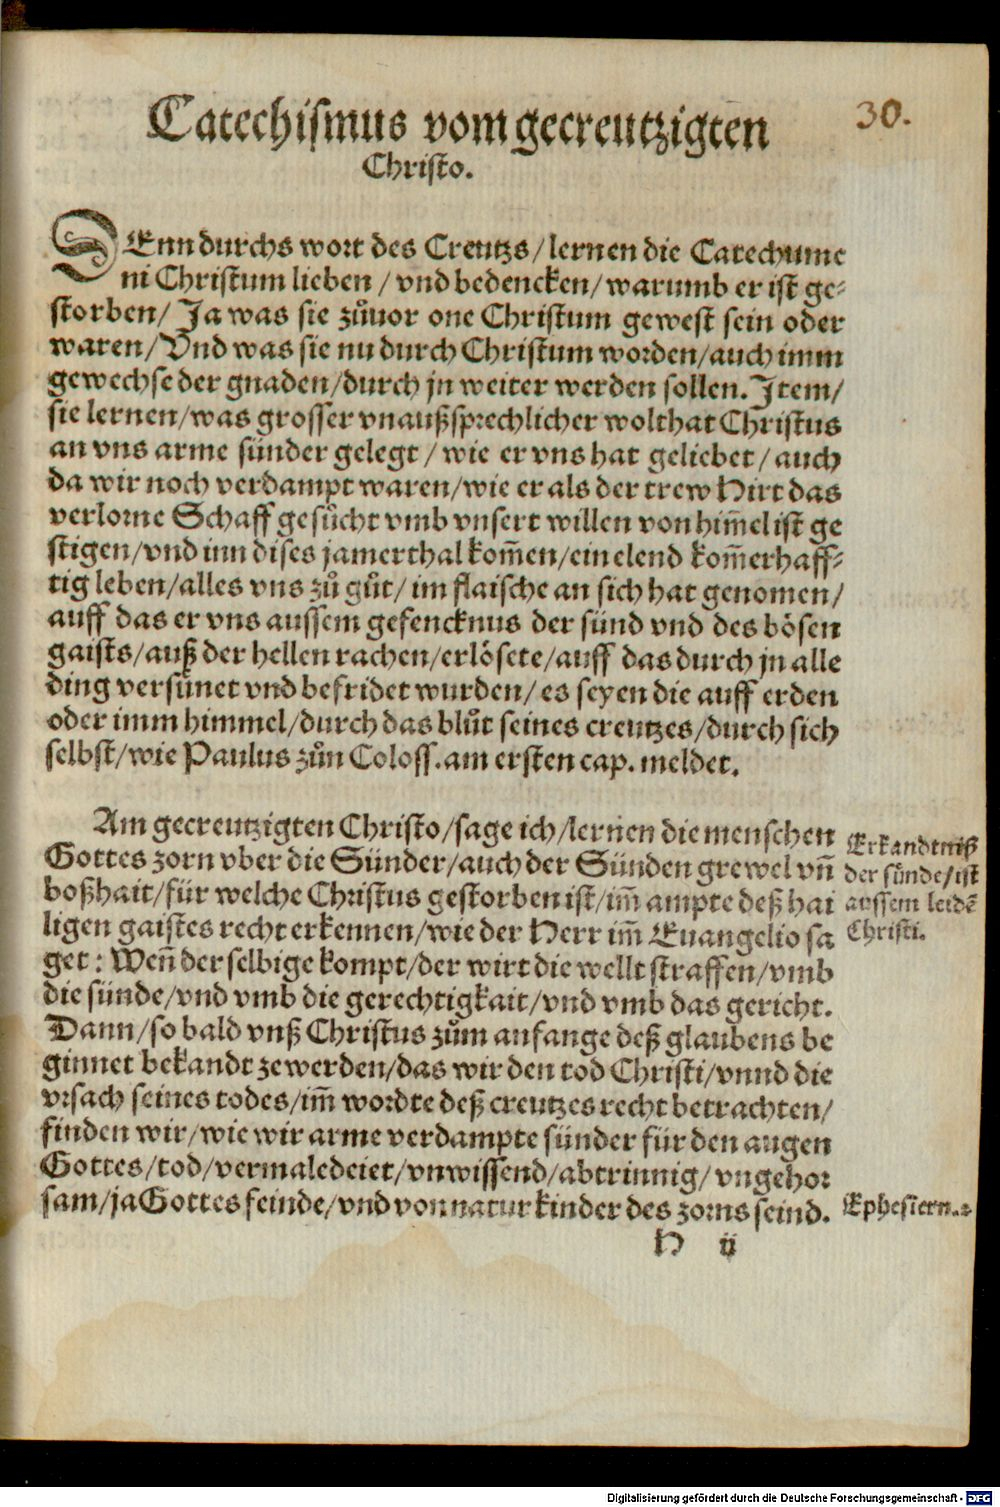 Catechismus vom gecreutzigten
30.
Christo.
DEnn durchs wort des Creutzs/lernen die Catechume
ni Christum lieben / vnd bedencken/warumb er ist ge⸗
storben/ Ja was sie zůuor one Christum gewest sein oder
waren/Vnd was sie nu durch Christum worden/auch imm
gewechse der gnaden/durch jn weiter werden sollen. Item/
sie lernen/was grosser vnaußsprechlicher wolthat Christus
an vns arme sünder gelegt / wie er vns hat geliebet/ auch
da wir noch verdampt waren/wie er als der trew Hirt das
verlorne Schaff gesůcht vmb vnsert willen von him̄el ist ge
stigen/vnd inn dises jamerthal kom̄en/ein elend kom̄erhaff⸗
tig leben/alles vns zů gůt/ im flaische an sich hat genomen/
auff das er vns aussem gefencknus der sünd vnd des bösen
gaists/auß der hellen rachen/erlösete/auff das durch jn alle
ding versünet vnd befridet wurden/es seyen die auff erden
oder imm himmel/durch das blůt seines creutzes/durch sich
selbst/wie Paulus zůn Coloss.am ersten cap. meldet.
Am gecreutzigten Christo/sage ich/lernen die menschen
Gottes zorn vber die Sünder/auch der Sünden grewel vn̄
boßhait/für welche Christus gestorben ist/im̄ ampte deß hai
ligen gaistes recht erkennen/wie der Herr im̄ Euangelio sa
get: Wen̄ der selbige kompt/der wirt die wellt straffen/vmb
die sünde/vnd vmb die gerechtigkait/vnd vmb das gericht.
Dann/so bald vnß Christus zům anfange deß glaubens be
ginnet bekandt ze werden/das wir den tod Christi/vnnd die
vrsach seines todes/im̄ wordte deß creutzes recht betrachten/
finden wir/wie wir arme verdampte sünder für den augen
Gottes/tod/vermaledeiet/vnwissend/abtrinnig/vngehor
sam/ja Gottes feinde/vnd von natur kinder des zorns seind.
Erkandtniß
der sünde/ist
aussem leidē
Christi.
Ephesiern.2
H ij
Digitalisierung gefördert durch die Deutsche Forschungsgemeinschaft - DFG